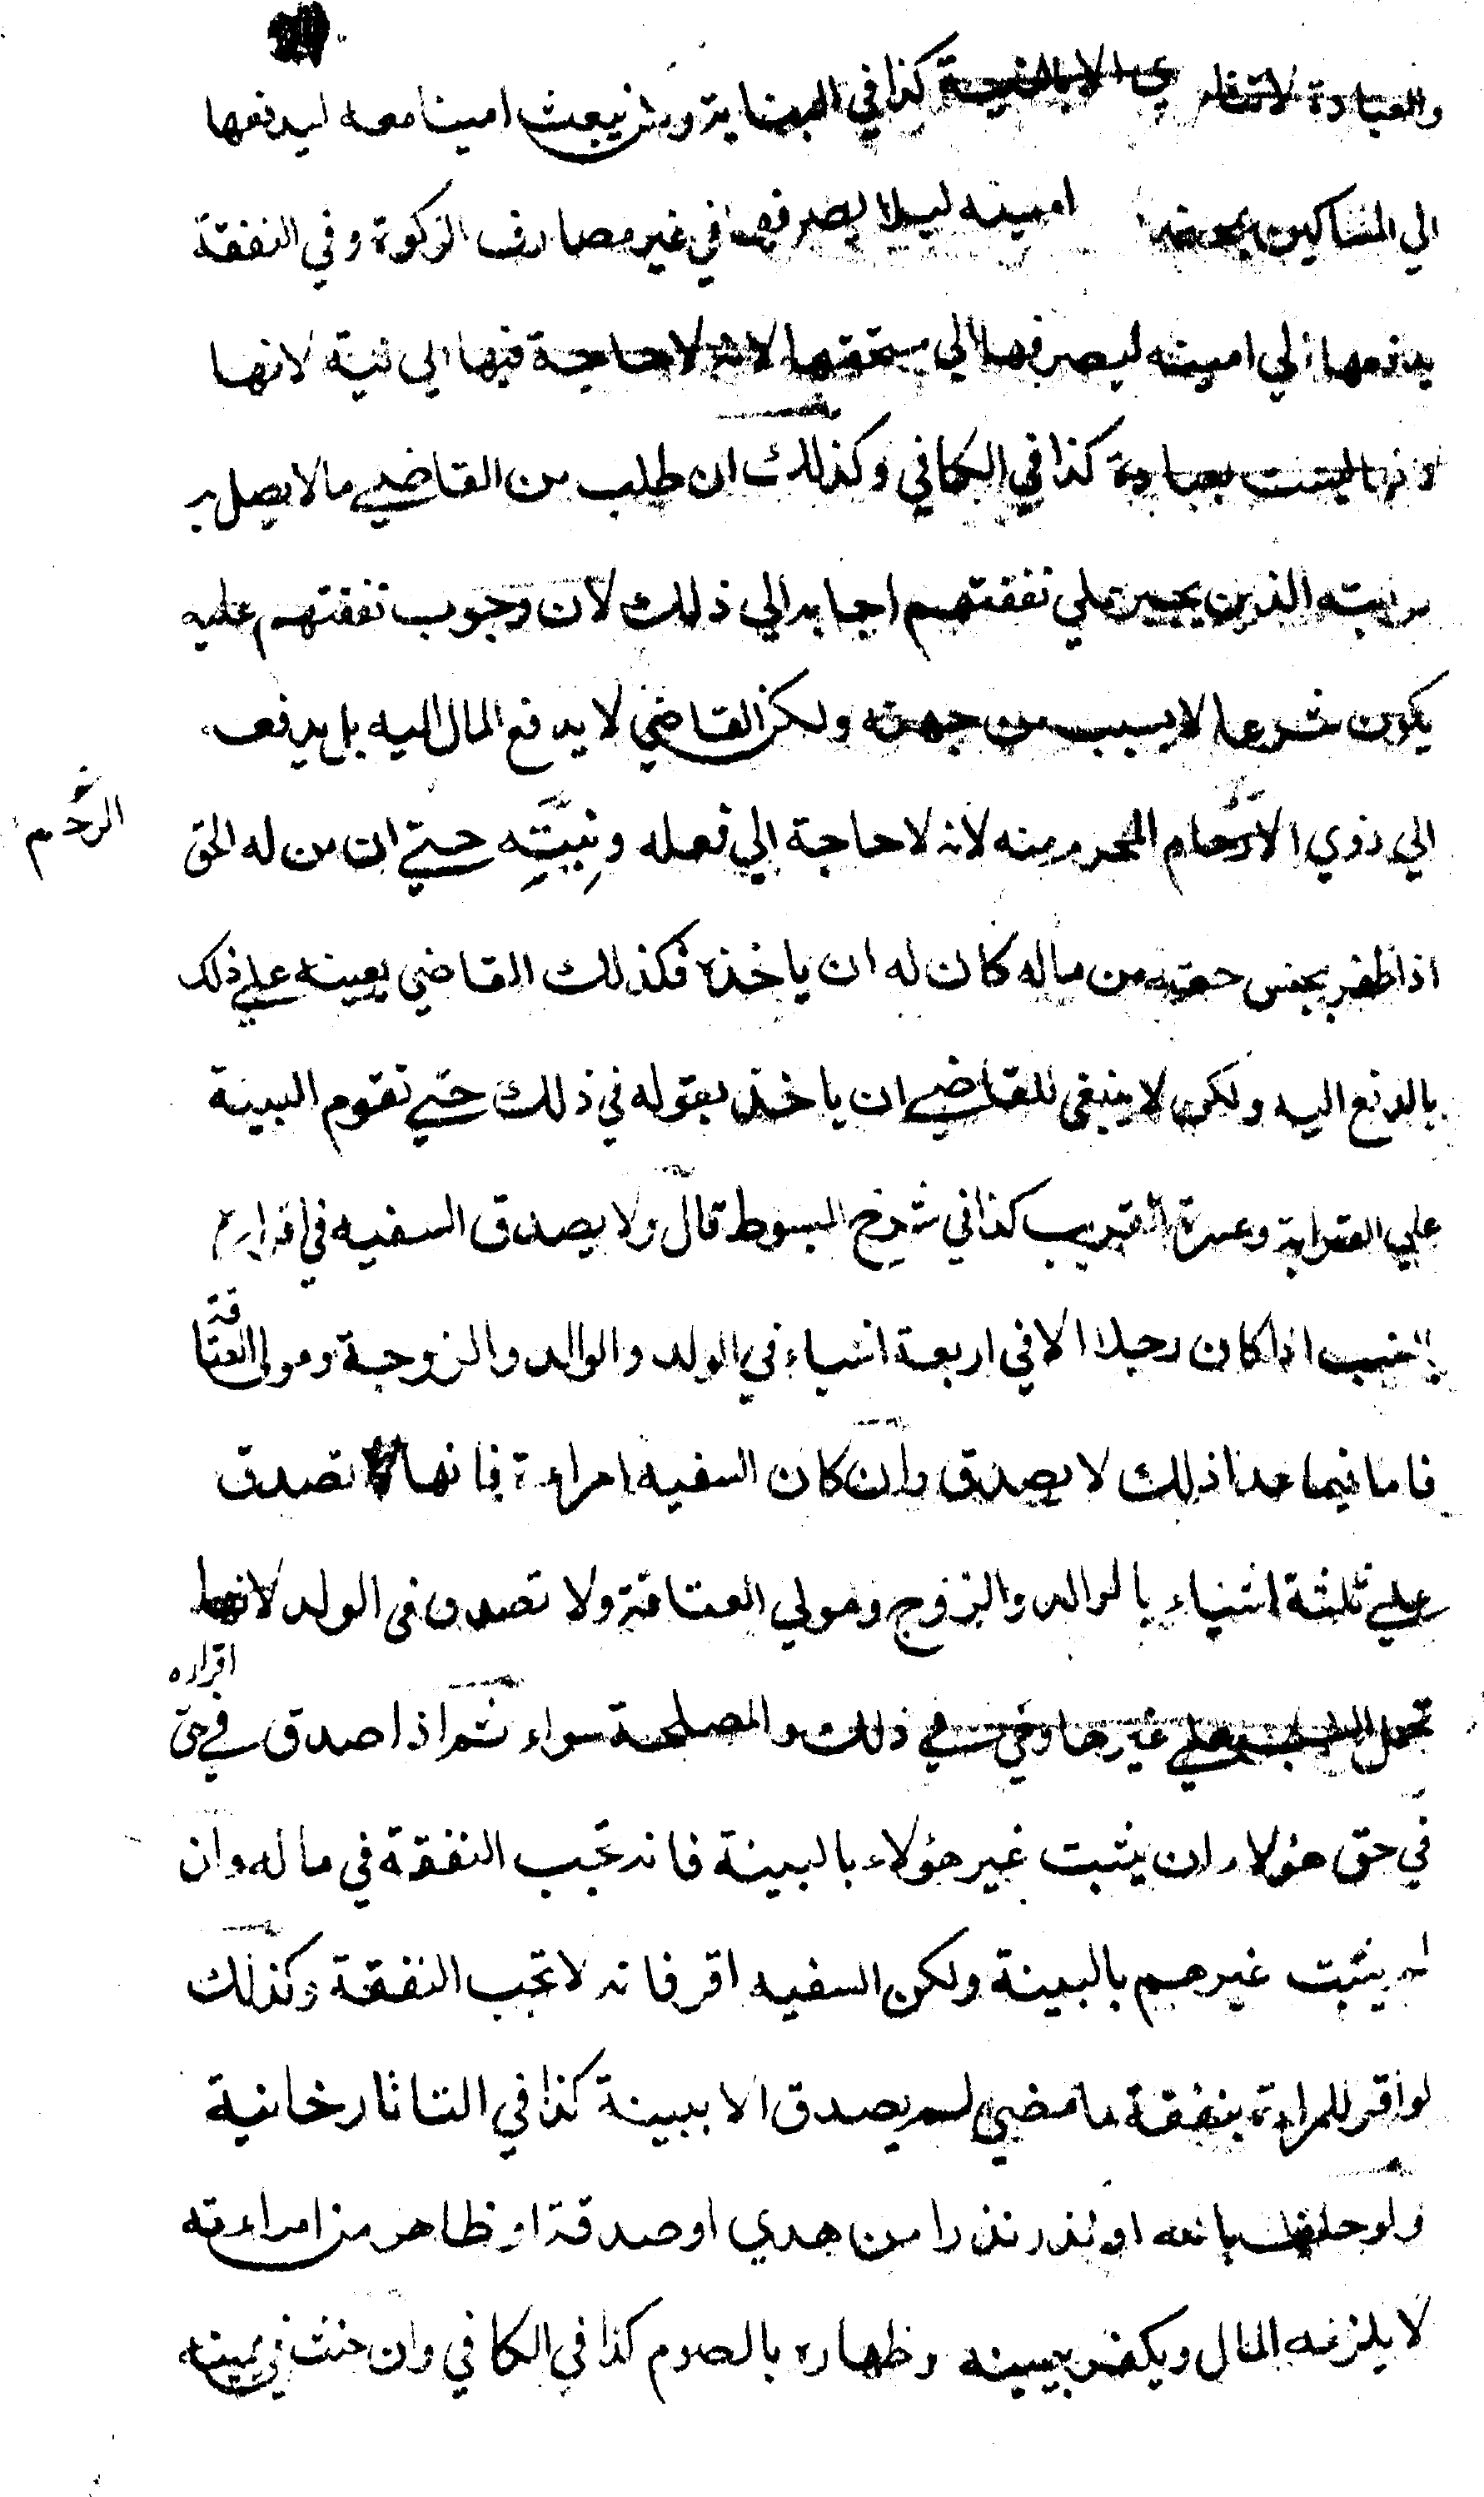 والعبادة لا تتادي الا بالنية كذا في النهاية ولكن يبعث امينا معه ليدفعها
الي المساكين بحضرة امينه ليلا يصرفها في غير مصارف الزكوة وفي النفقة
يدفعها الي امينه ليصرفها الي مستحقها لانه لا حاجة فيها الي نية لانها
لانها ليست بعبادة كذا في الكافي وكذلك ان طلب من القاضي مالا يصل به
الذين يجبر علي نفقتهم اجابه الي ذلك لان وجوب نفقتهم عليه
يكون شرعا لا بسبب من جهته ولكن القاضي لا يدفع المال اليه بل يدفعه
الي ذوي الارحام المحرم منه لانه لا حاجة الي فعله ونيته حتي ان من له الحق
الرحم
اذا ظفر بجنس حقه من ماله كان له ان ياخذه فكذلك القاضي يعينه علي ذلك
بالدفع اليه ولكن لا ينبغي للقاضي ان ياخذ بقوله في ذلك حتي تقوم البينة
علي القرابة وعسرة القريب كذا في شرح المبسوط قال ولا يصدق السفيه في اقراره
اذا كان رجلا الا في اربعة اشياء في الولد والوالد والزوجة ومولي العتاقة
فاما فيما عدا ذلك لا يصدق وان كان السفيه امراءة فانها تصدق
علي ثلثة اشياء بالوالد والزوج ومولي العتاقة ولا تصدق في الولد لانها
تحمل النسب علي غيرها وفي ذلك والمصلحة سواء ثم اذا صدق في حق اقراره
في حق هؤلاء ان يثبت غير هؤلاء بالبينة فانه تجب النفقة في ماله وان
لم يثبت غيرهم بالبينة ولكن السفيه اقر فانه لا تجب النفقة وكذلك
لو اقر للمراءة بنفقة ما مضي لم يصدق الا ببينة كذا في التاتارخانية
ولو حلف بالله او نذر نذرا من هدي او صدقة او ظاهر من امراءته
لا يلزمه المال ويكفر يمينه وظهاره بالصوم كذا في الكافي وان حنث في يمينه